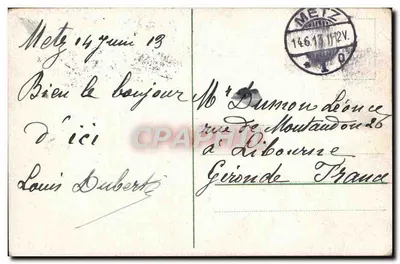 Metz 14 Juin 13
Bien le bonjour
d'ici
Louis Dubert
METZ
14.6.13 11-12V.
Mr Dumon Léonce
rue de Montaudon 26
à Libourne
Gironde France
CPARAMA